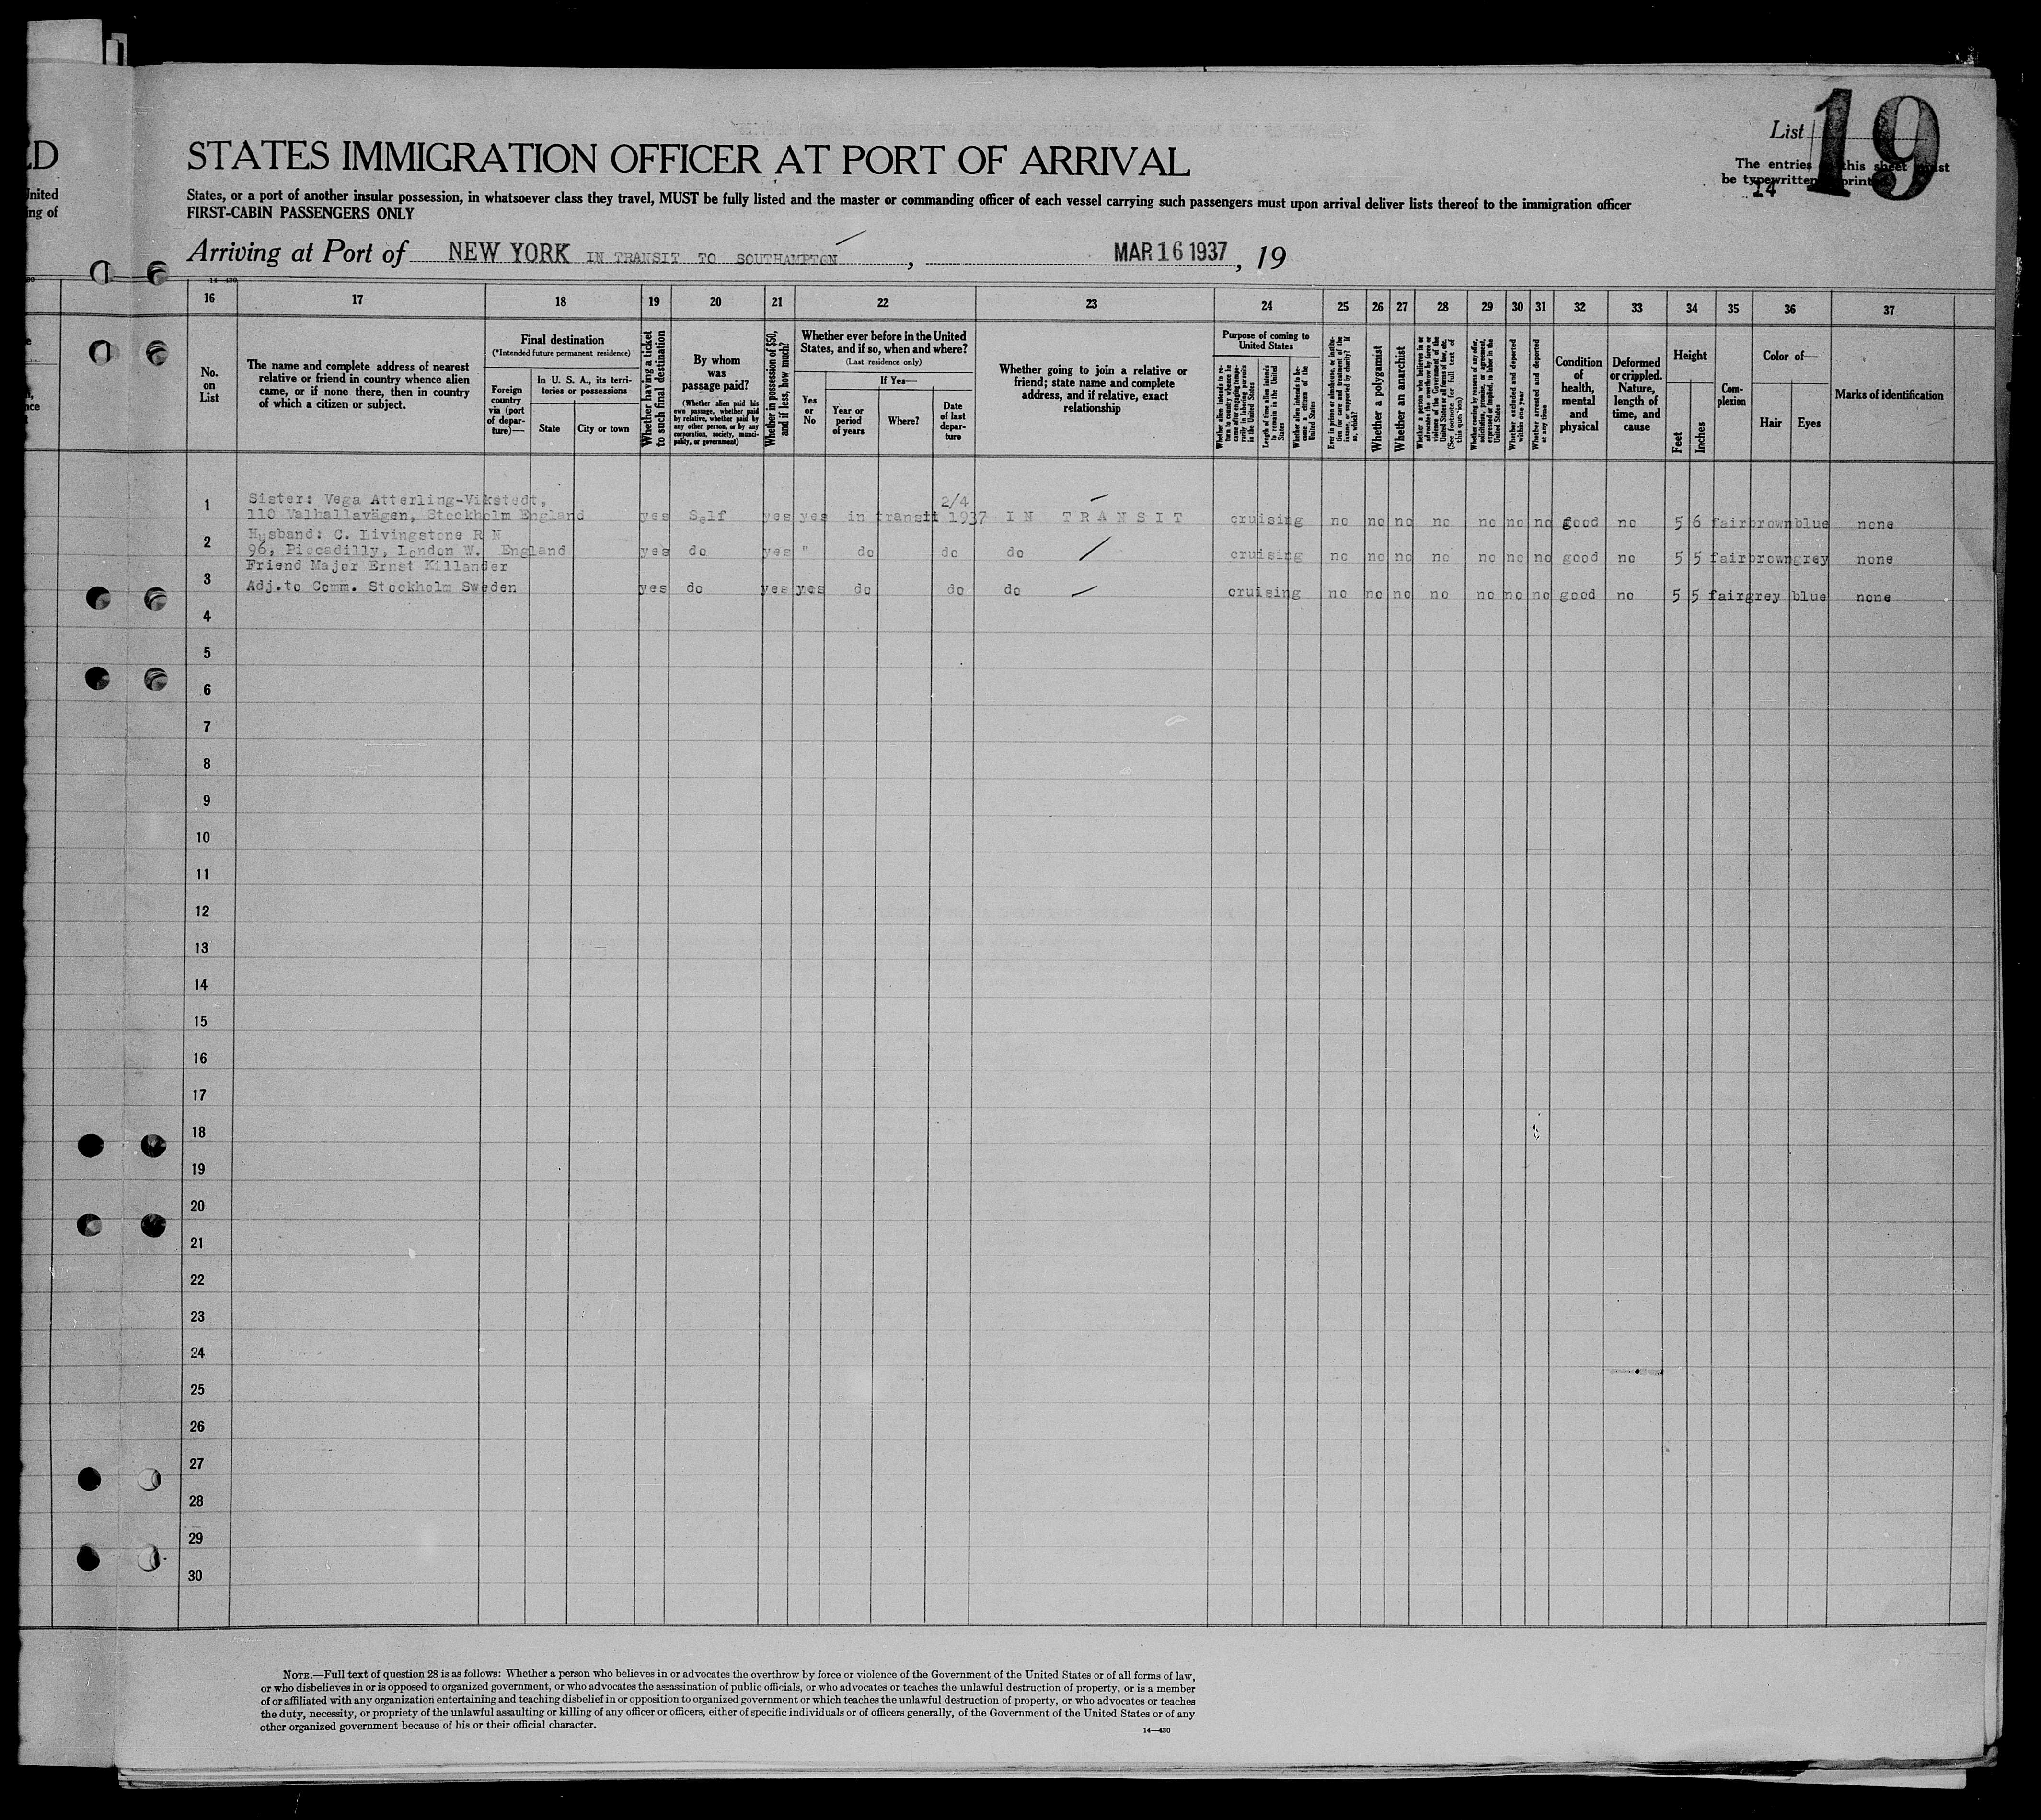 ED
United
ing of
List 19
The entries this sheet must
be typewritten print
14
STATES IMMIGRATION OFFICER AT PORT OF ARRIVAL
States, or a port of another insular possession, in whatsoever class they travel, MUST be fully listed and the master or commanding officer of each vessel carrying such passengers must upon arrival deliver lists thereof to the immigration officer
FIRST-CABIN PASSENGERS ONLY
Arriving at Port of NEW YORK IN TRANSIT TO SOUTHAMPTON, MAR 16 1937, 19
14—430
16 17 18 19 20 21 22 23 24 25 26 27 28 29 30 31 32 33 34 35 36 37
No. on List
The name and complete address of nearest relative or friend in country whence alien came, or if none there, then in country of which a citizen or subject.
Final destination
(*Intended future permanent residence)
Foreign country via (port of departure)—
In U. S. A., its territories or possessions
State
City or town
Whether having a ticket to such final destination
By whom was passage paid?
(Whether alien paid his own passage, whether paid by relative, whether paid by any other person, or by any corporation, society, municipality, or government)
Whether in possession of $50, and if less, how much?
Whether ever before in the United States, and if so, when and where?
(Last residence only)
Yes or No
If Yes—
Year or period of years
Where?
Date of last departure
Whether going to join a relative or friend; state name and complete address, and if relative, exact relationship
Purpose of coming to United States
Whether alien intends to return to country whence he came after engaging temporarily in laboring pursuits in the United States
Length of time alien intends to remain in the United States
Whether alien intends to become a citizen of the United States
Ever in prison or almshouse, or institution for care and treatment of the insane, or supported by charity? If so, which?
Whether a polygamist
Whether an anarchist
Whether a person who believes in or advocates the overthrow by force or violence of the Government of the United States or all forms of law, etc. (See footnote for full text of this question)
Whether coming by reasons of any offer, solicitation, promise, or agreement, expressed or implied, to labor in the United States
Whether excluded and deported within one year
Whether arrested and deported at any time
Condition of health, mental and physical
Deformed or crippled. Nature, length of time, and cause
Height
Feet
Inches
Complexion
Color of—
Hair
Eyes
Marks of identification
Sister: Vega Atterling-Vikstedt, 2/4
1 110 Valhallavägen, Stockholm England yes Self yes yes in transit 1937 IN TRANSIT cruising no no no no no no no good no 5 6 fair brown blue none
Husband: C. Livingstone R N
2 96, Piccadilly, London W. England yes do yes " do do do cruising no no no no no no no good no 5 5 fair brown grey none
Friend Major Ernst Killander
3 Adj.to Comm. Stockholm Sweden yes do yes yes do do do cruising no no no no no no no good no 5 5 fair grey blue none
4
5
6
7
8
9
10
11
12
13
14
15
16
17
18
19
20
21
22
23
24
25
26
27
28
29
30
NOTE.—Full text of question 28 is as follows: Whether a person who believes in or advocates the overthrow by force or violence of the Government of the United States or of all forms of law,
or who disbelieves in or is opposed to organized government, or who advocates the assassination of public officials, or who advocates or teaches the unlawful destruction of property, or is a member
of or affiliated with any organization entertaining and teaching disbelief in or opposition to organized government or which teaches the unlawful destruction of property, or who advocates or teaches
the duty, necessity, or propriety of the unlawful assaulting or killing of any officer or officers, either of specific individuals or of officers generally, of the Government of the United States or of any
other organized government because of his or their official character.
14—430